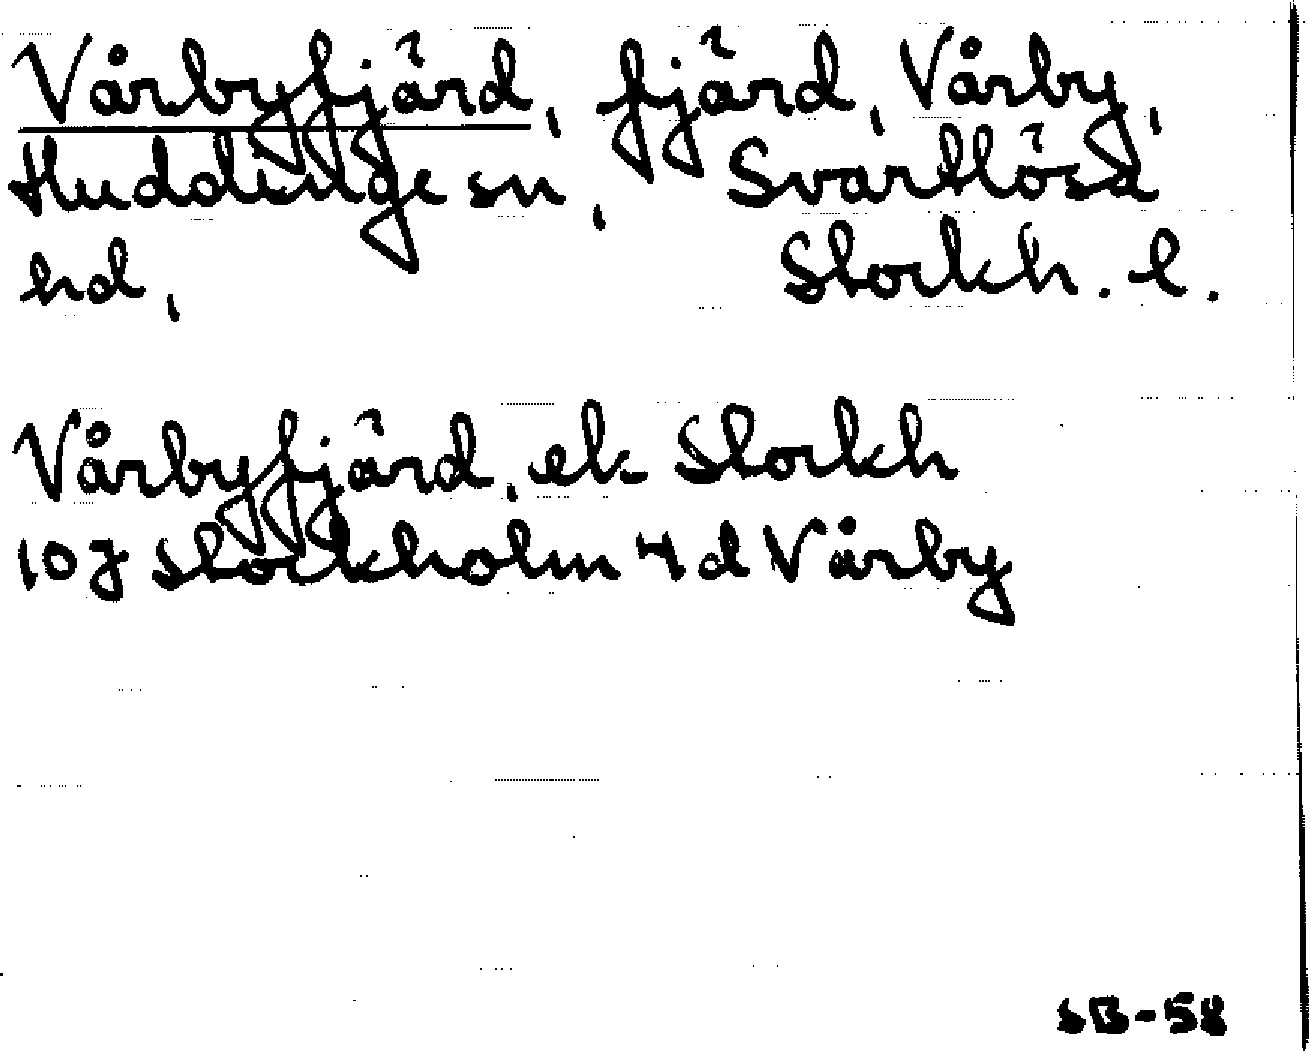 Vårbyfjärd, fjärd, Vårby,
Huddinge sn, Svartlösa
hd, Stockh. l.
Vårbyfjärd, ek Stockh
10J Stockholm 4d Vårby
SB-58